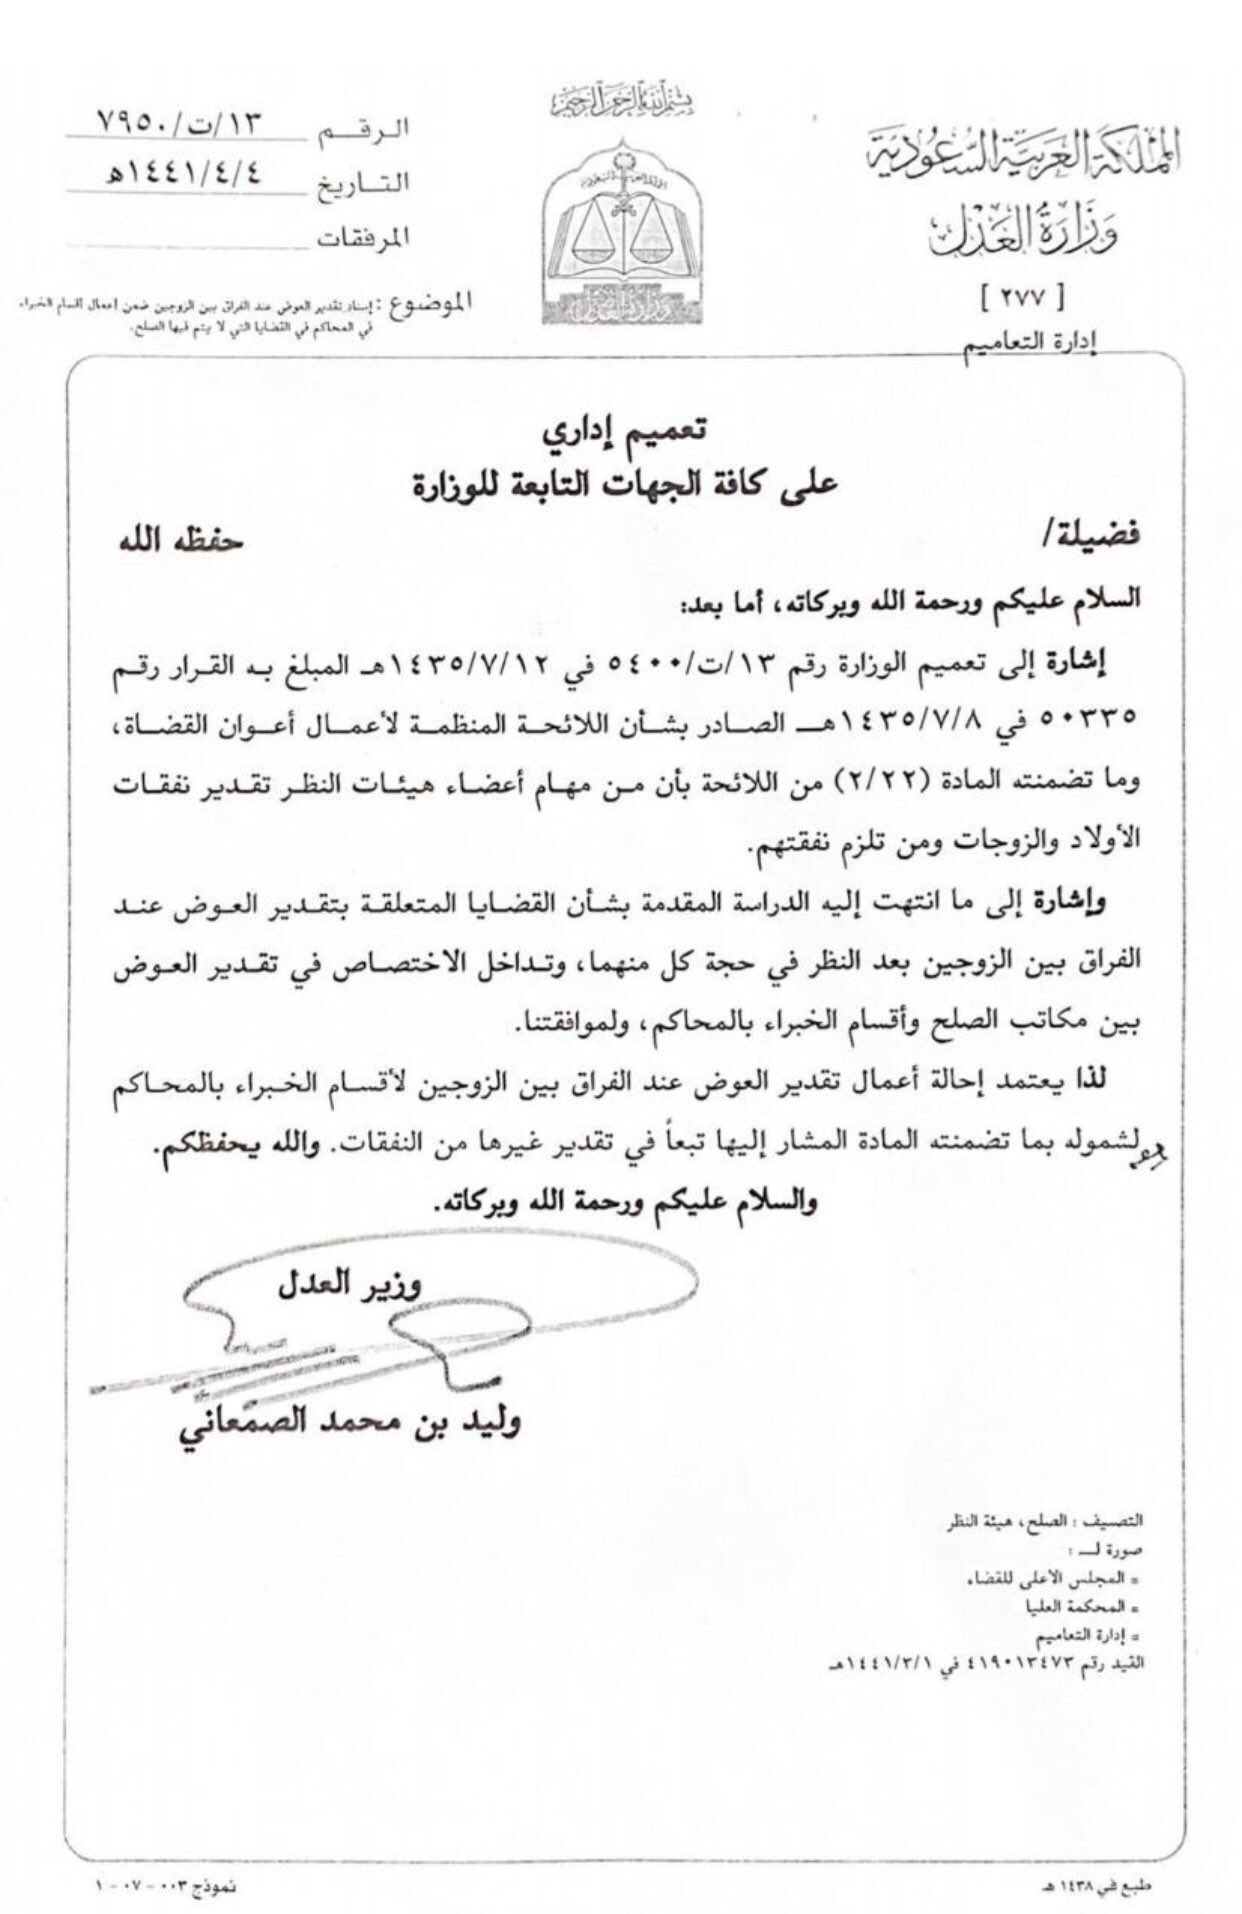 بسم الله الرحمن الرحيم
المملكة العربية السعودية
وزارة العدل
[ ٢٧٧ ]
إدارة التعاميم
الرقـم ١٣/ت/٧٩٥٠
التـاريخ ١٤٤١/٤/٤هـ
المرفقات
الموضوع : إسناد تقدير العوض عند الفراق بين الزوجين ضمن أعمال أقسام الخبراء
في المحاكم في القضايا التي لا يتم فيها الصلح.
تعميم إداري
على كافة الجهات التابعة للوزارة
فضيلة/ حفظه الله
السلام عليكم ورحمة الله وبركاته، أما بعد:
إشارة إلى تعميم الوزارة رقم ١٣/ت/٥٤٠٠ في ١٤٣٥/٧/١٢هـ المبلغ بـه القـرار رقـم
٥٠٣٣٥ في ١٤٣٥/٧/٨هـ الصـادر بشـأن اللائحـة المنظمـة لأعمـال أعـوان القضـاة،
وما تضمنته المادة (٢/٢٢) من اللائحة بأن مـن مهـام أعضـاء هيئـات النظـر تقـدير نفقـات
الأولاد والزوجات ومن تلزم نفقتهم.
وإشارة إلى ما انتهت إليه الدراسة المقدمة بشـأن القضايا المتعلقـة بتقـدير العـوض عنـد
الفراق بين الزوجين بعد النظر في حجة كل منهمـا، وتـداخل الاختصـاص في تقـدير العـوض
بين مكاتب الصلح وأقسام الخبراء بالمحاكم، ولموافقتنا.
لذا يعتمد إحالة أعمال تقدير العوض عند الفراق بين الزوجين لأقسـام الخـبراء بالمحـاكم
لشموله بما تضمنته المادة المشار إليها تبعاً في تقدير غيرها من النفقات. والله يحفظكم.
والسلام عليكم ورحمة الله وبركاته.
وزير العدل
وليد بن محمد الصمعاني
التصنيف : الصلح، هيئة النظر
صورة لـ :
= المجلس الأعلى للقضاء
= المحكمة العليا
= إدارة التعاميم
القيد رقم ٤١٩٠١٣٤٧٣ في ١٤٤١/٣/١هـ
طبع في ١٤٣٨ هـ
نموذج ٠٠٣ - ٠٧ - ١